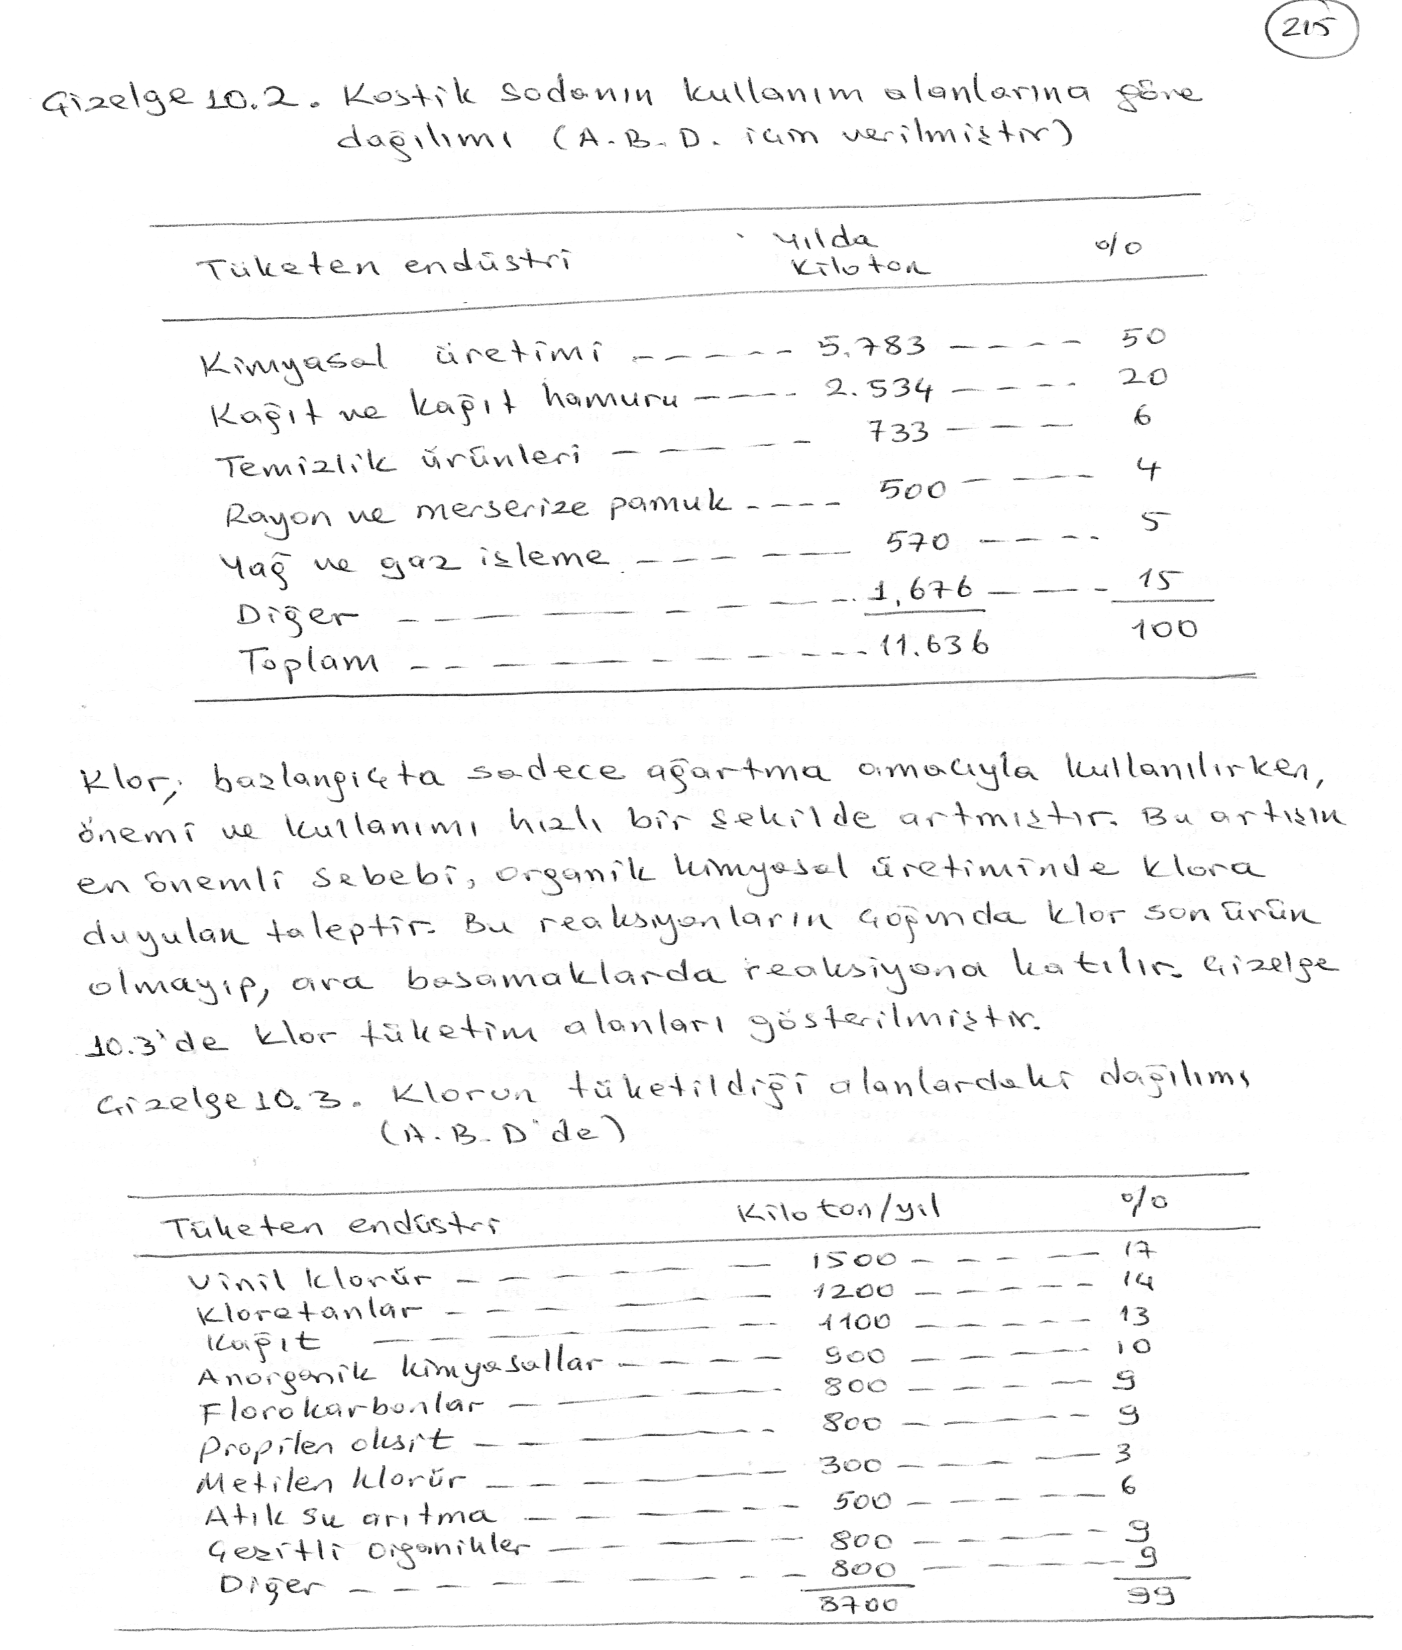 215
Çizelge 10.2. Kostik sodanın kullanım alanlarına göre
dağılımı (A.B.D. için verilmiştir)
Tüketen endüstri Yılda Kiloton %
Kimyasal üretimi ------ 5.783 ---- 50
Kağıt ve kağıt hamuru ---- 2.534 ---- 20
Temizlik ürünleri ------ 733 --- 6
Rayon ve merserize pamuk ---- 500 ---- 4
Yağ ve gaz işleme ------ 570 ---- 5
Diğer --------- 1,676 ---- 15
Toplam ---------- 11.636 100
Klor, başlangıçta sadece ağartma amacıyla kullanılırken,
önemi ve kullanımı hızlı bir şekilde artmıştır. Bu artışın
en önemli sebebi, organik kimyasal üretiminde klora
duyulan taleptir. Bu reaksiyonların çoğunda klor son ürün
olmayıp, ara basamaklarda reaksiyona katılır. Çizelge
10.3'de klor tüketim alanları gösterilmiştir.
Çizelge 10.3. Klorun tüketildiği alanlardaki dağılımı
(A.B.D'de)
Tüketen endüstri Kiloton/yıl %
Vinil klorür ------- 1500 ----- 17
Kloretanlar ------- 1200 ----- 14
Kağıt ------- 1100 ----- 13
Anorganik kimyasallar ---- 900 ---- 10
Florokarbonlar ------ 800 ---- 9
Propilen oksit ------ 800 ----- 9
Metilen klorür ------ 300 ---- 3
Atık su arıtma ------ 500 ---- 6
Çeşitli organikler ----- 800 ----- 9
Diğer --------- 800 ----- 9
3700 99